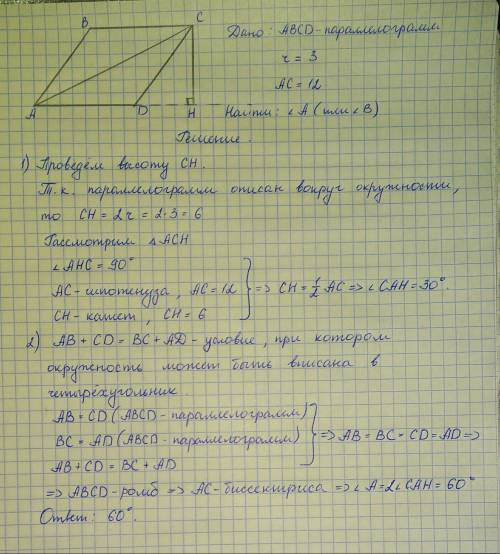 B
C
A
D
H
Дано: ABCD - параллелограмм
r = 3
AC = 12
Найти: ∠A (или ∠B)
Решение.
1) Проведём высоту CH.
Т.к. параллелограмм описан вокруг окружности,
то CH = 2r = 2·3 = 6
Рассмотрим △ACH
∠AHC = 90°
AC - гипотенуза, AC = 12
CH - катет, CH = 6
=> CH = 1/2 AC => ∠CAH = 30°.
2) AB + CD = BC + AD - условие, при котором
окружность может быть вписана в
четырёхугольник.
AB = CD (ABCD - параллелограмм)
BC = AD (ABCD - параллелограмм)
AB + CD = BC + AD
=> AB = BC = CD = AD =>
=> ABCD - ромб => AC - биссектриса => ∠A = 2∠CAH = 60°
Ответ: 60°.